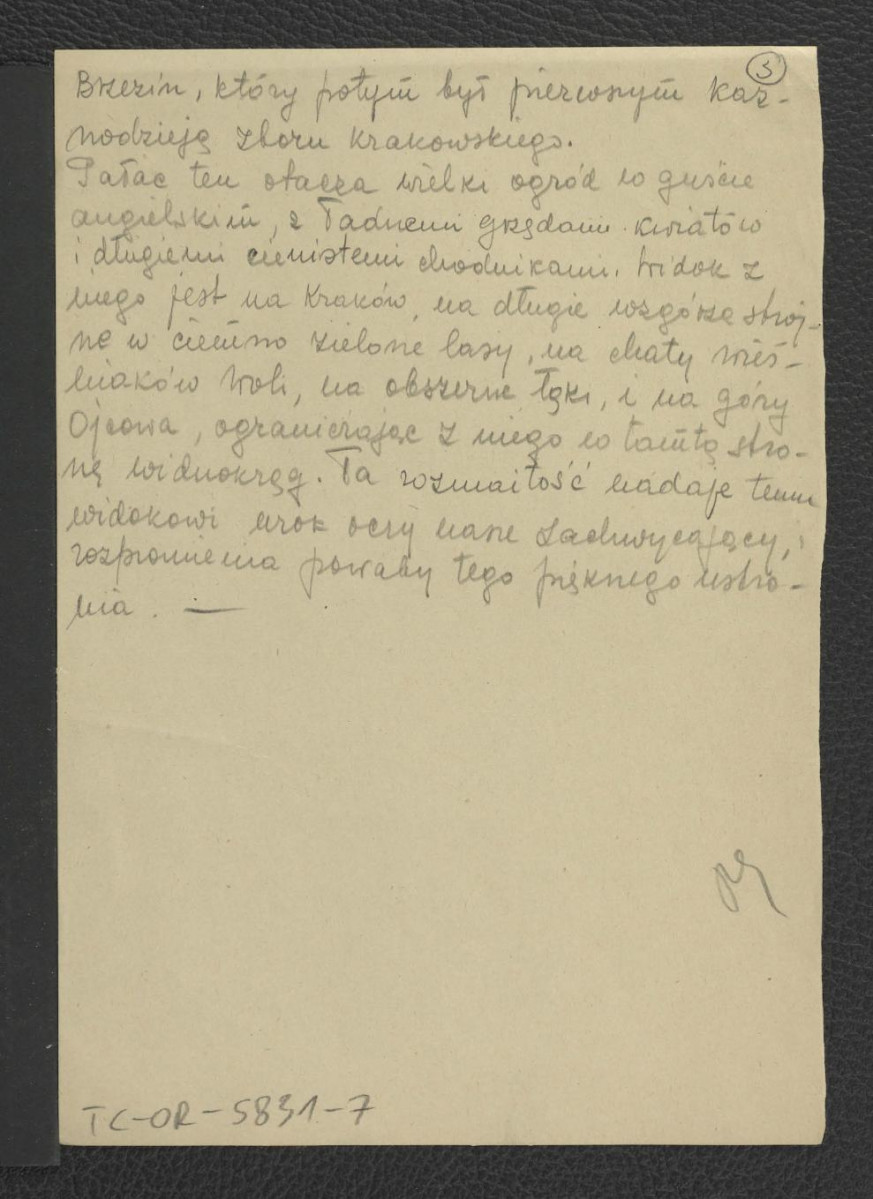 5
Brzezin, który potym był pierwszym kaz-
nodzieją zboru Krakowskiego.
Pałac ten otacza wielki ogród w guście
angielskim, z ładnemi grzędami kwiatów
i długiemi cienistemi chodnikami. Widok z
niego jest na Kraków, na długie wzgórza stroj-
ne w ciemno zielone lasy, na chaty wieś-
niaków Woli, na obszerne łąki, i na góry
Ojcowa, ograniczając z niego w tamtą stro-
nę widnokrąg. Ta rozmaitość nadaje temu
widokowi urok oczy nasze zachwycający, i
rozpromienia powaby tego pięknego ustro-
nia. —
TC-OR-5831-7